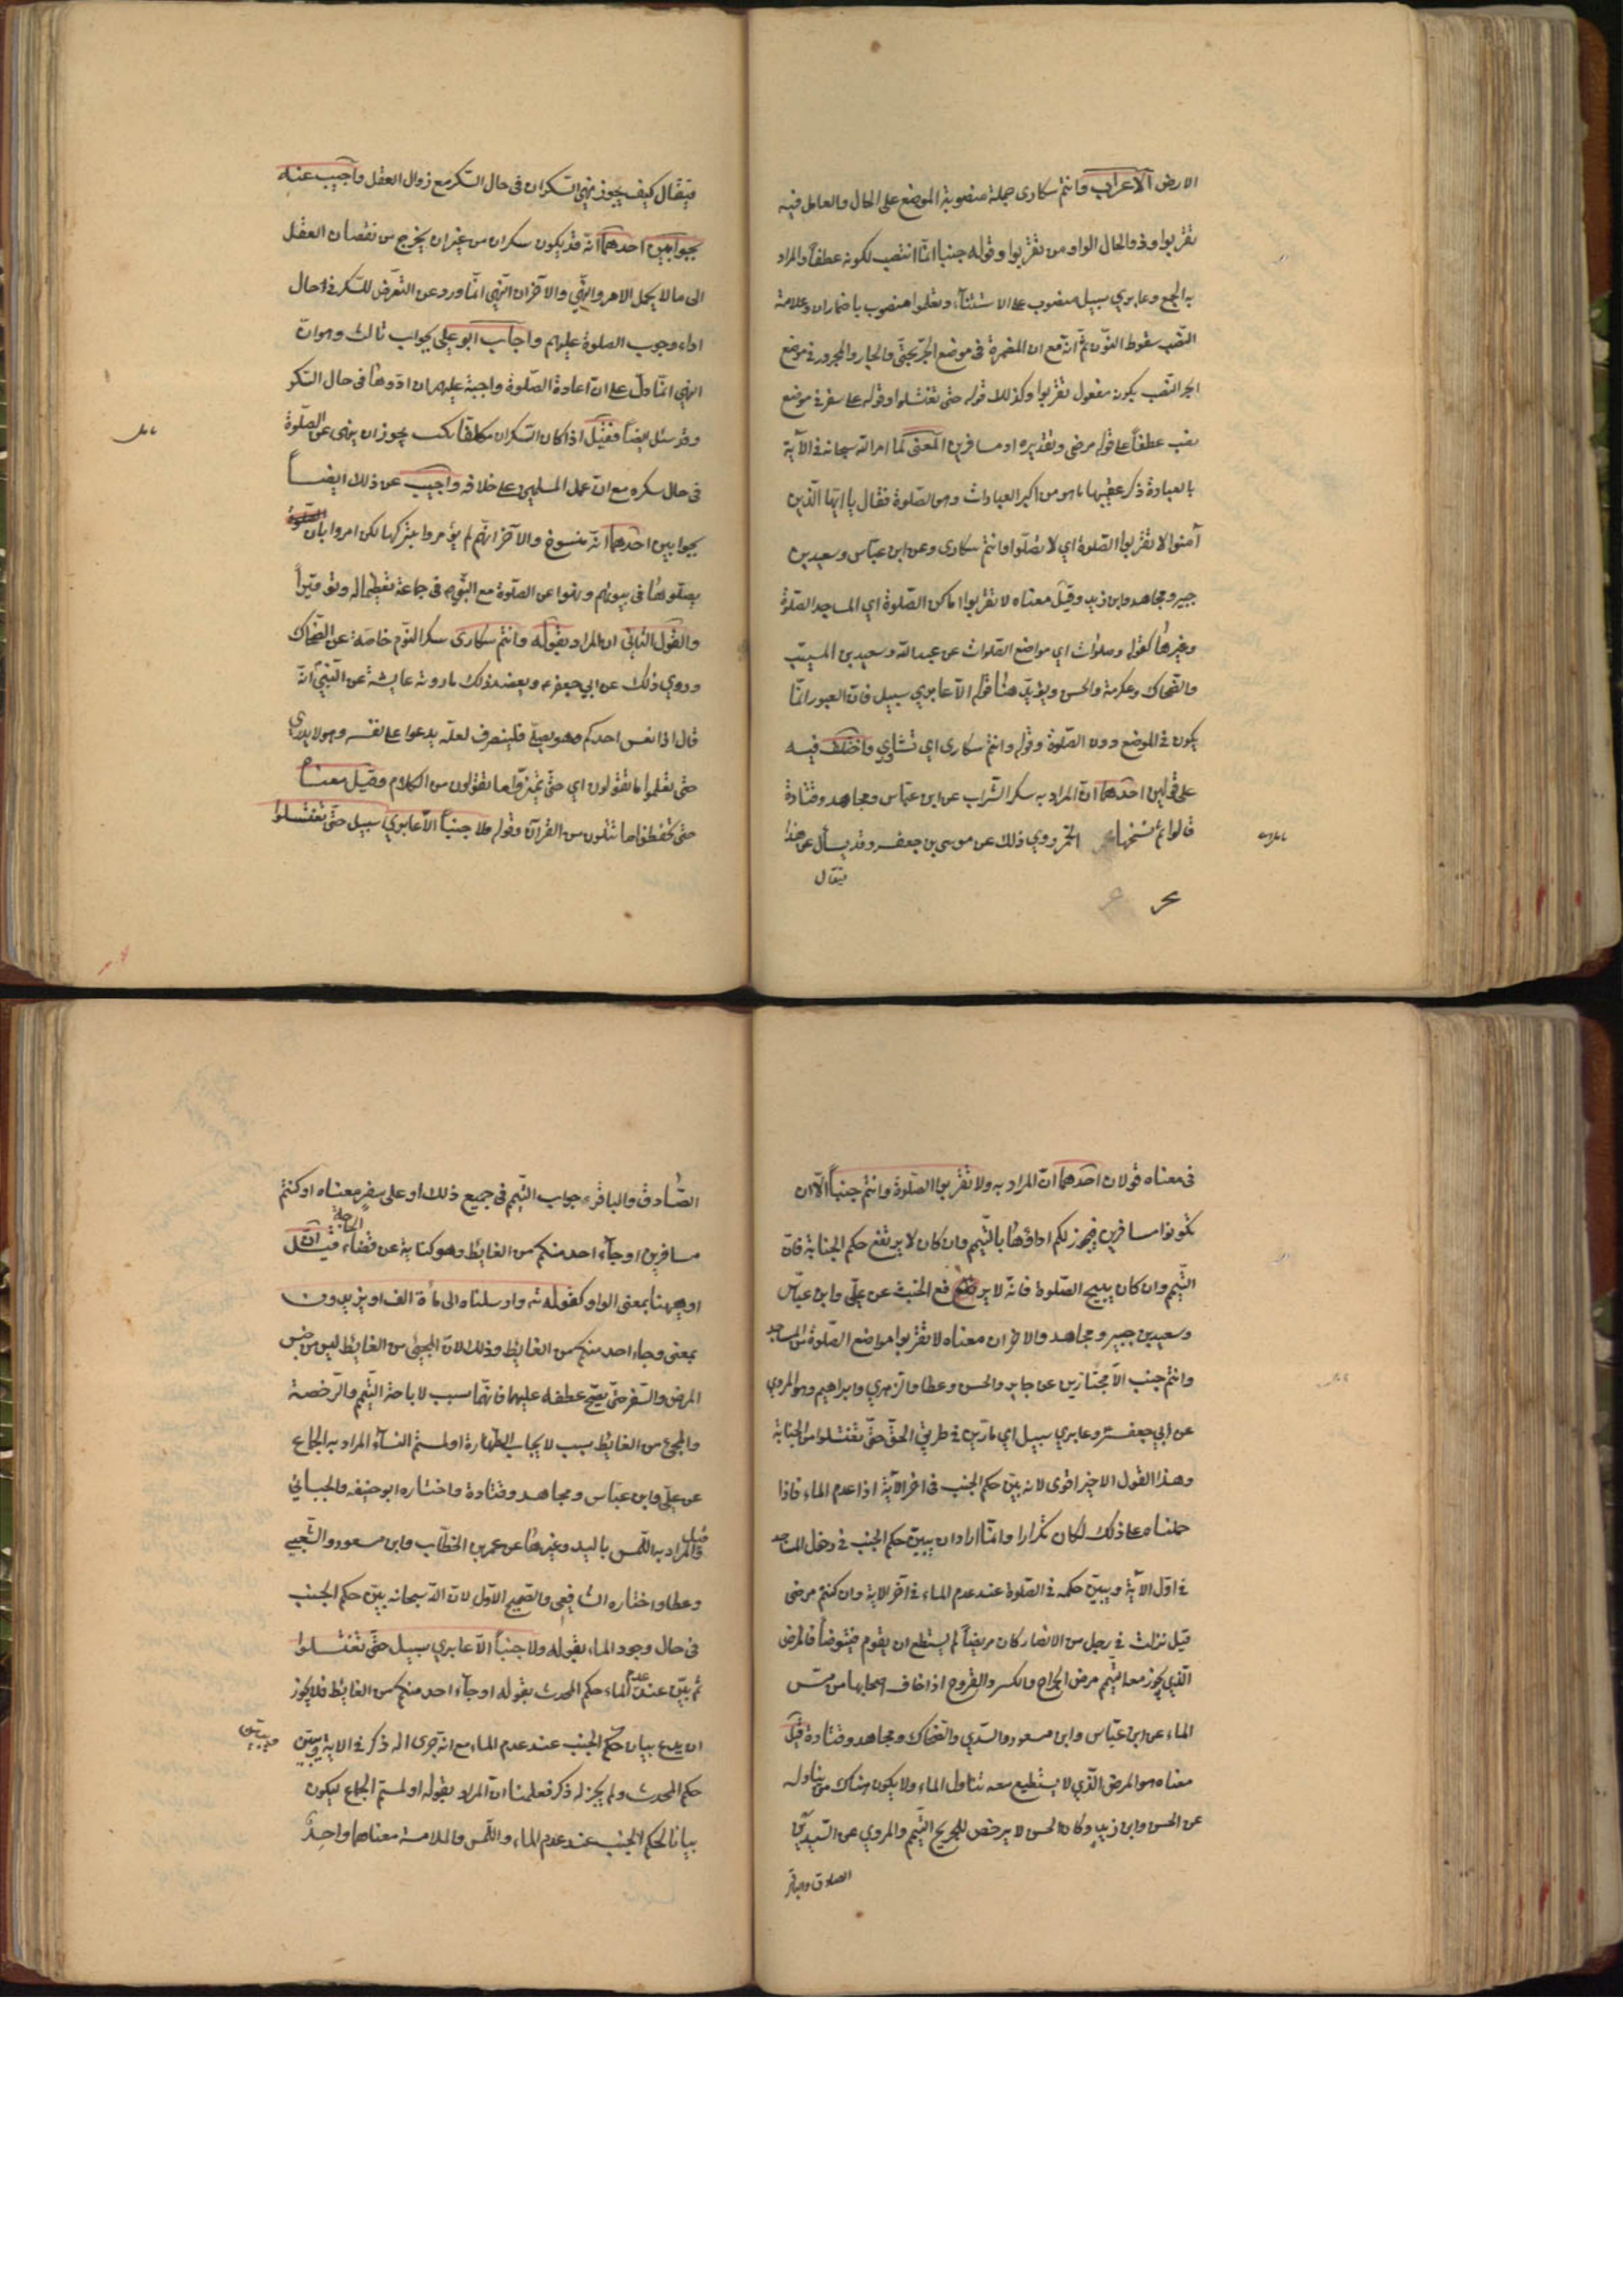 الارض الاعراب وانتم سكارى جملة منصوبة الموضع على الحال والعامل فيه
تقربوا وذو الحال الواو من تقربوا وقوله جنبا انما انتصب لكونه عطفاً والمراد
به الجمع وعابري سبيل منصوب على الاستثنآء وتعلموا منصوب باضمار ان وعلامة
النصب سقوط النون ثم انه مع ان المضمرة في موضع الجرّ بحتّى والجار والمجرور في موضع
النصب بكونه مفعول تقربوا وكذلك قوله حتى تغتسلوا وقوله على سفر في موضع
نصب عطفاً على قوله مرضى وتقديره او مسافرين المعنى لما امر الله سبحانه في الآية
بالعبادة ذكر عقيبها ما هو من اكبر العبادات وهو الصّلوة فقال يا ايّها الّذين
آمنوا لا تقربوا الصّلوة اي لا تصلّوا وانتم سكارى وعن ابن عبّاس وسعيد بن
جبير ومجاهد وابن زيد وقيل معناه لا تقربوا اماكن الصّلوة اي المساجد للصّلوة
وغيرها كقوله وصلوات اي مواضع الصّلوات عن عبد الله وسعيد بن المسيّب
والضّحاك وعكرمة والحسن ويؤيّد هذا قوله الّا عابري سبيل فانّ العبور انّما
يكون في الموضع دون الصّلوة وقوله وانتم سكارى اي نشاوى واختلف فيه
على قولين احدهما انّ المراد به سكر الشّراب عن ابن عبّاس ومجاهد وقتادة
قالوا ثم نسخها الخمر وروي ذلك عن موسى بن جعفر وقد يسأل عن هذا
فيقال
فيقال كيف يجوز نهي السّكران في حال السّكر مع زوال العقل واجيب عنه
بجوابين احدهما انّه قد يكون سكران من غير ان يخرج من نقصان العقل
الى ما لا يحتمل الامر والنّهي والآخر ان النّهي انّما ورد عن التّعرّض للسّكر في حال
اداء وجوب الصلوة عليهم واجاب ابو علي بجواب ثالث وهو انّ
النهي انّما دلّ على انّ اعادة الصّلوة واجبة عليهم ان ادّوها في حال السّكر
وقد سئل ايضاً فقيل اذا كان السّكران مكلّفا فكيف يجوز ان ينهى عن الصّلوة
في حال سكره مع انّ عمل المسلمين على خلافه واجيب عن ذلك ايضاً
بجوابين احدهما انّه منسوخ والآخر انّهم لم يؤمروا بتركها لكن امروا بان
يصلّوها في بيوتهم ونهوا عن الصّلوة مع النّبي في جماعة تعظيما له وتوقيراً
والقول الثّاني ان المراد بقوله وانتم سكارى سكر النّوم خاصّة عن الضّحاك
وروي ذلك عن ابي جعفر ويعضد ذلك ما روته عايشة عن النّبيّ انّه
قال اذا نعس احدكم وهو يصلّي فلينصرف لعلّه يدعوا على نفسه وهو لا يدري
حتى تعلموا ما تقولون اي حتّى تميّزوا ما تقولون من الكلام وقيل معناه
حتّى تحفظوا ما تتلون من القرآن وقوله ولا جنباً الّا عابري سبيل حتّى تغتسلوا
في معناه قولان احدهما انّ المراد به ولا تقربوا الصّلوة وانتم جنباً الّا ان
تكونوا مسافرين فيجوز لكم اداؤها بالتّيمم وان كان لا يرتفع حكم الجنابة فانّ
التّيمم وان كان يبيح الصّلوة فانّه لا يرفع الحدث عن علي وابن عبّاس
وسعيد بن جبير ومجاهد والاخر ان معناه لا تقربوا مواضع الصّلوة من المساجد
وانتم جنب الّا مجتازين عن جابر والحسن وعطا والزهري وابراهيم وهو المروي
عن ابي جعفر وعابري سبيل اي مارّين في طريق الحقّ حتّى تغتسلوا من الجنابة
وهذا القول الاخير اقوى لانه بيّن حكم الجنب في آخر الآية اذا عدم الماء فاذا
حملناه على ذلك لكان تكرارا وانّما اراد ان يبيّن حكم الجنب في دخول المساجد
في اوّل الآية ويبيّن حكمه في الصّلوة عند عدم الماء في آخر الاية وان كنتم مرضى
قيل نزلت في رجل من الانصار كان مريضاً لم يستطع ان يقوم فيتوضأ فالمرض
الّذي يجوز معه التّيمم مرض الجراح والكسر والقروح اذا خاف اصحابها من مسّ
الماء عن ابن عبّاس وابن مسعود والسّدي والضّحاك ومجاهد وقتادة وقيل
معناه هو المرض الّذي لا يستطيع معه تناول الماء ولا يكون هناك من يناوله
عن الحسن وابن زيد وكان الحسن لا يرخص للجريح التّيمم والمروي عن السّيدين
الصادق والباقر
الصّادق والباقر جواب التّيمم في جميع ذلك او على سفر معناه او كنتم
مسافرين او جآء احد منكم من الغايط وهو كناية عن قضاء الحاجة قيل انّ
او ههنا بمعنى الواو كقوله وارسلناه الى مأة الف او يزيدون
بمعنى وجاء احد منكم من الغايط وذلك لانّ المجيئ من الغايط ليس من جنس
المرض والسّفر حتّى يصحّ عطفه عليهما فانّهما سبب لاباحة التّيمم والرّخصة
والمجئ من الغايط سبب لايجاب الطّهارة او لمستم النسآء المراد به الجماع
عن علي وابن عبّاس ومجاهد وقتادة واختاره ابو حنيفه والجبائي
وقيل المراد به اللّمس باليد وغيرها عن عمر بن الخطّاب وابن مسعود والشّعبي
وعطا واختاره الشافعي والصّحيح الاوّل لانّ الله سبحانه بيّن حكم الجنب
في حال وجود الماء بقوله ولا جنباً الّا عابري سبيل حتّى تغتسلوا
ثم بيّن عند عدم الماء حكم المحدث بقوله او جآء احد منكم من الغايط فلا يجوز
ان يدع بيان حكم الجنب عند عدم الماء مع انه جرى له ذكر في الاية ويبيّن
حكم المحدث ولم يجز له ذكر فعلمنا انّ المراد بقوله او لمستم الجماع ليكون
بيانا لحكم الجنب عند عدم الماء واللّمس والملامسة معناهما واحد